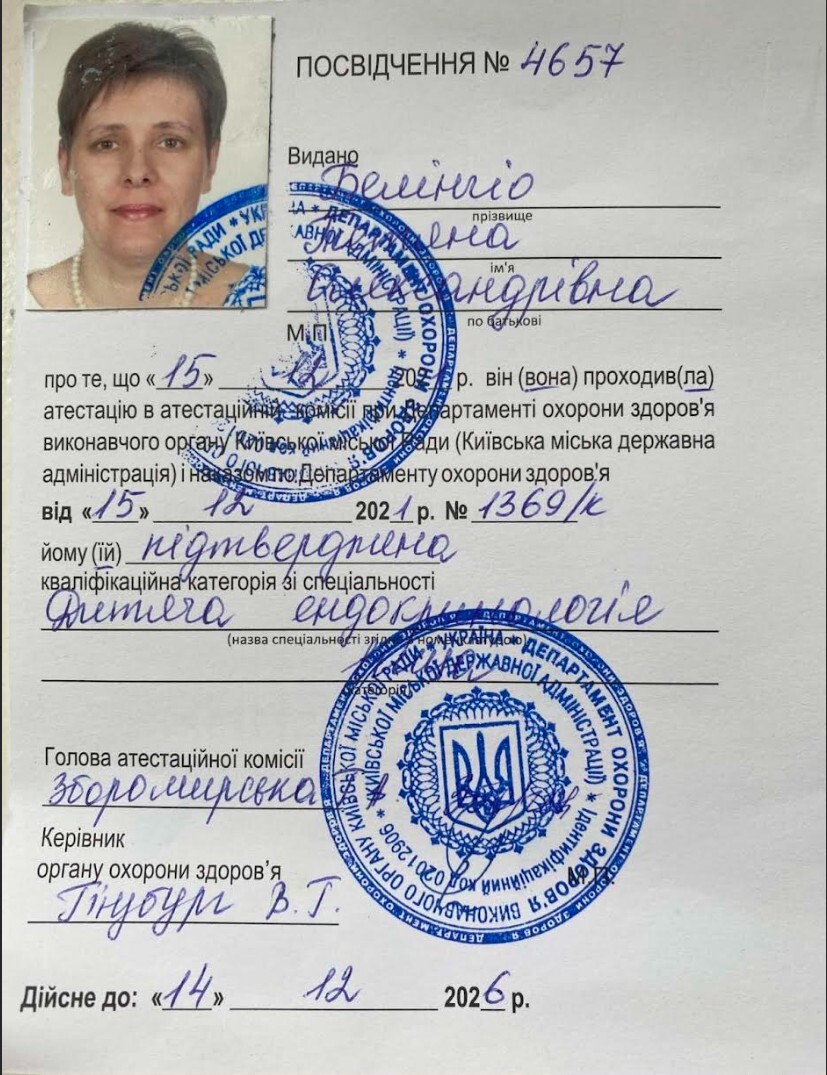 ПОСВІДЧЕННЯ № 4657
Видано
Белінгіо
прізвище
Тетяна
ім'я
Олександрівна
по батькові
М.П.
про те, що «15» 12 2021 р. він (вона) проходив(ла)
атестацію в атестаційній комісії при Департаменті охорони здоров'я
виконавчого органу Київської міської Ради (Київська міська державна
адміністрація) і наказом по Департаменту охорони здоров'я
від «15» 12 2021 р. № 1369/к
йому (їй) підтверджена
кваліфікаційна категорія зі спеціальності
Дитяча ендокринологія
(назва спеціальності згідно з номенклатурою)
(категорія)
Голова атестаційної комісії
Зборомирська
Керівник
органу охорони здоров'я
М.П.
Гінзбург В.Г.
УКРАЇНА * ДЕПАРТАМЕНТ ОХОРОНИ ЗДОРОВ'Я ВИКОНАВЧОГО ОРГАНУ КИЇВСЬКОЇ МІСЬКОЇ РАДИ *
КИЇВСЬКОЇ МІСЬКОЇ ДЕРЖАВНОЇ АДМІНІСТРАЦІЇ) * Ідентифікаційний код 02012906 *
Дійсне до: «14» 12 2026 р.